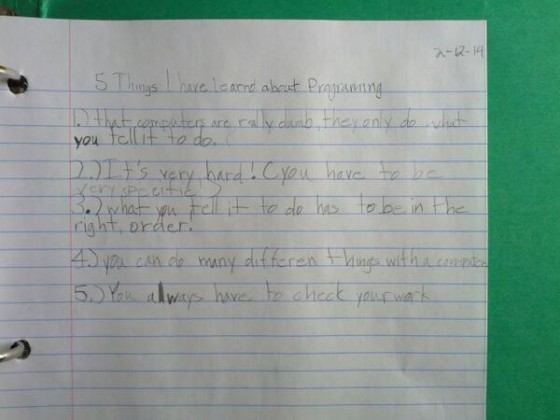 2-12-14
5 Things I have learnd about Programing
1.) that computers are really dumb, they only do what
you tell it to do.
2.) It's very hard! (you have to be
very specific!)
3.) what you tell it to do has to be in the
right, order.
4.) you can do many differen things with a computer
5.) You always have to check your work